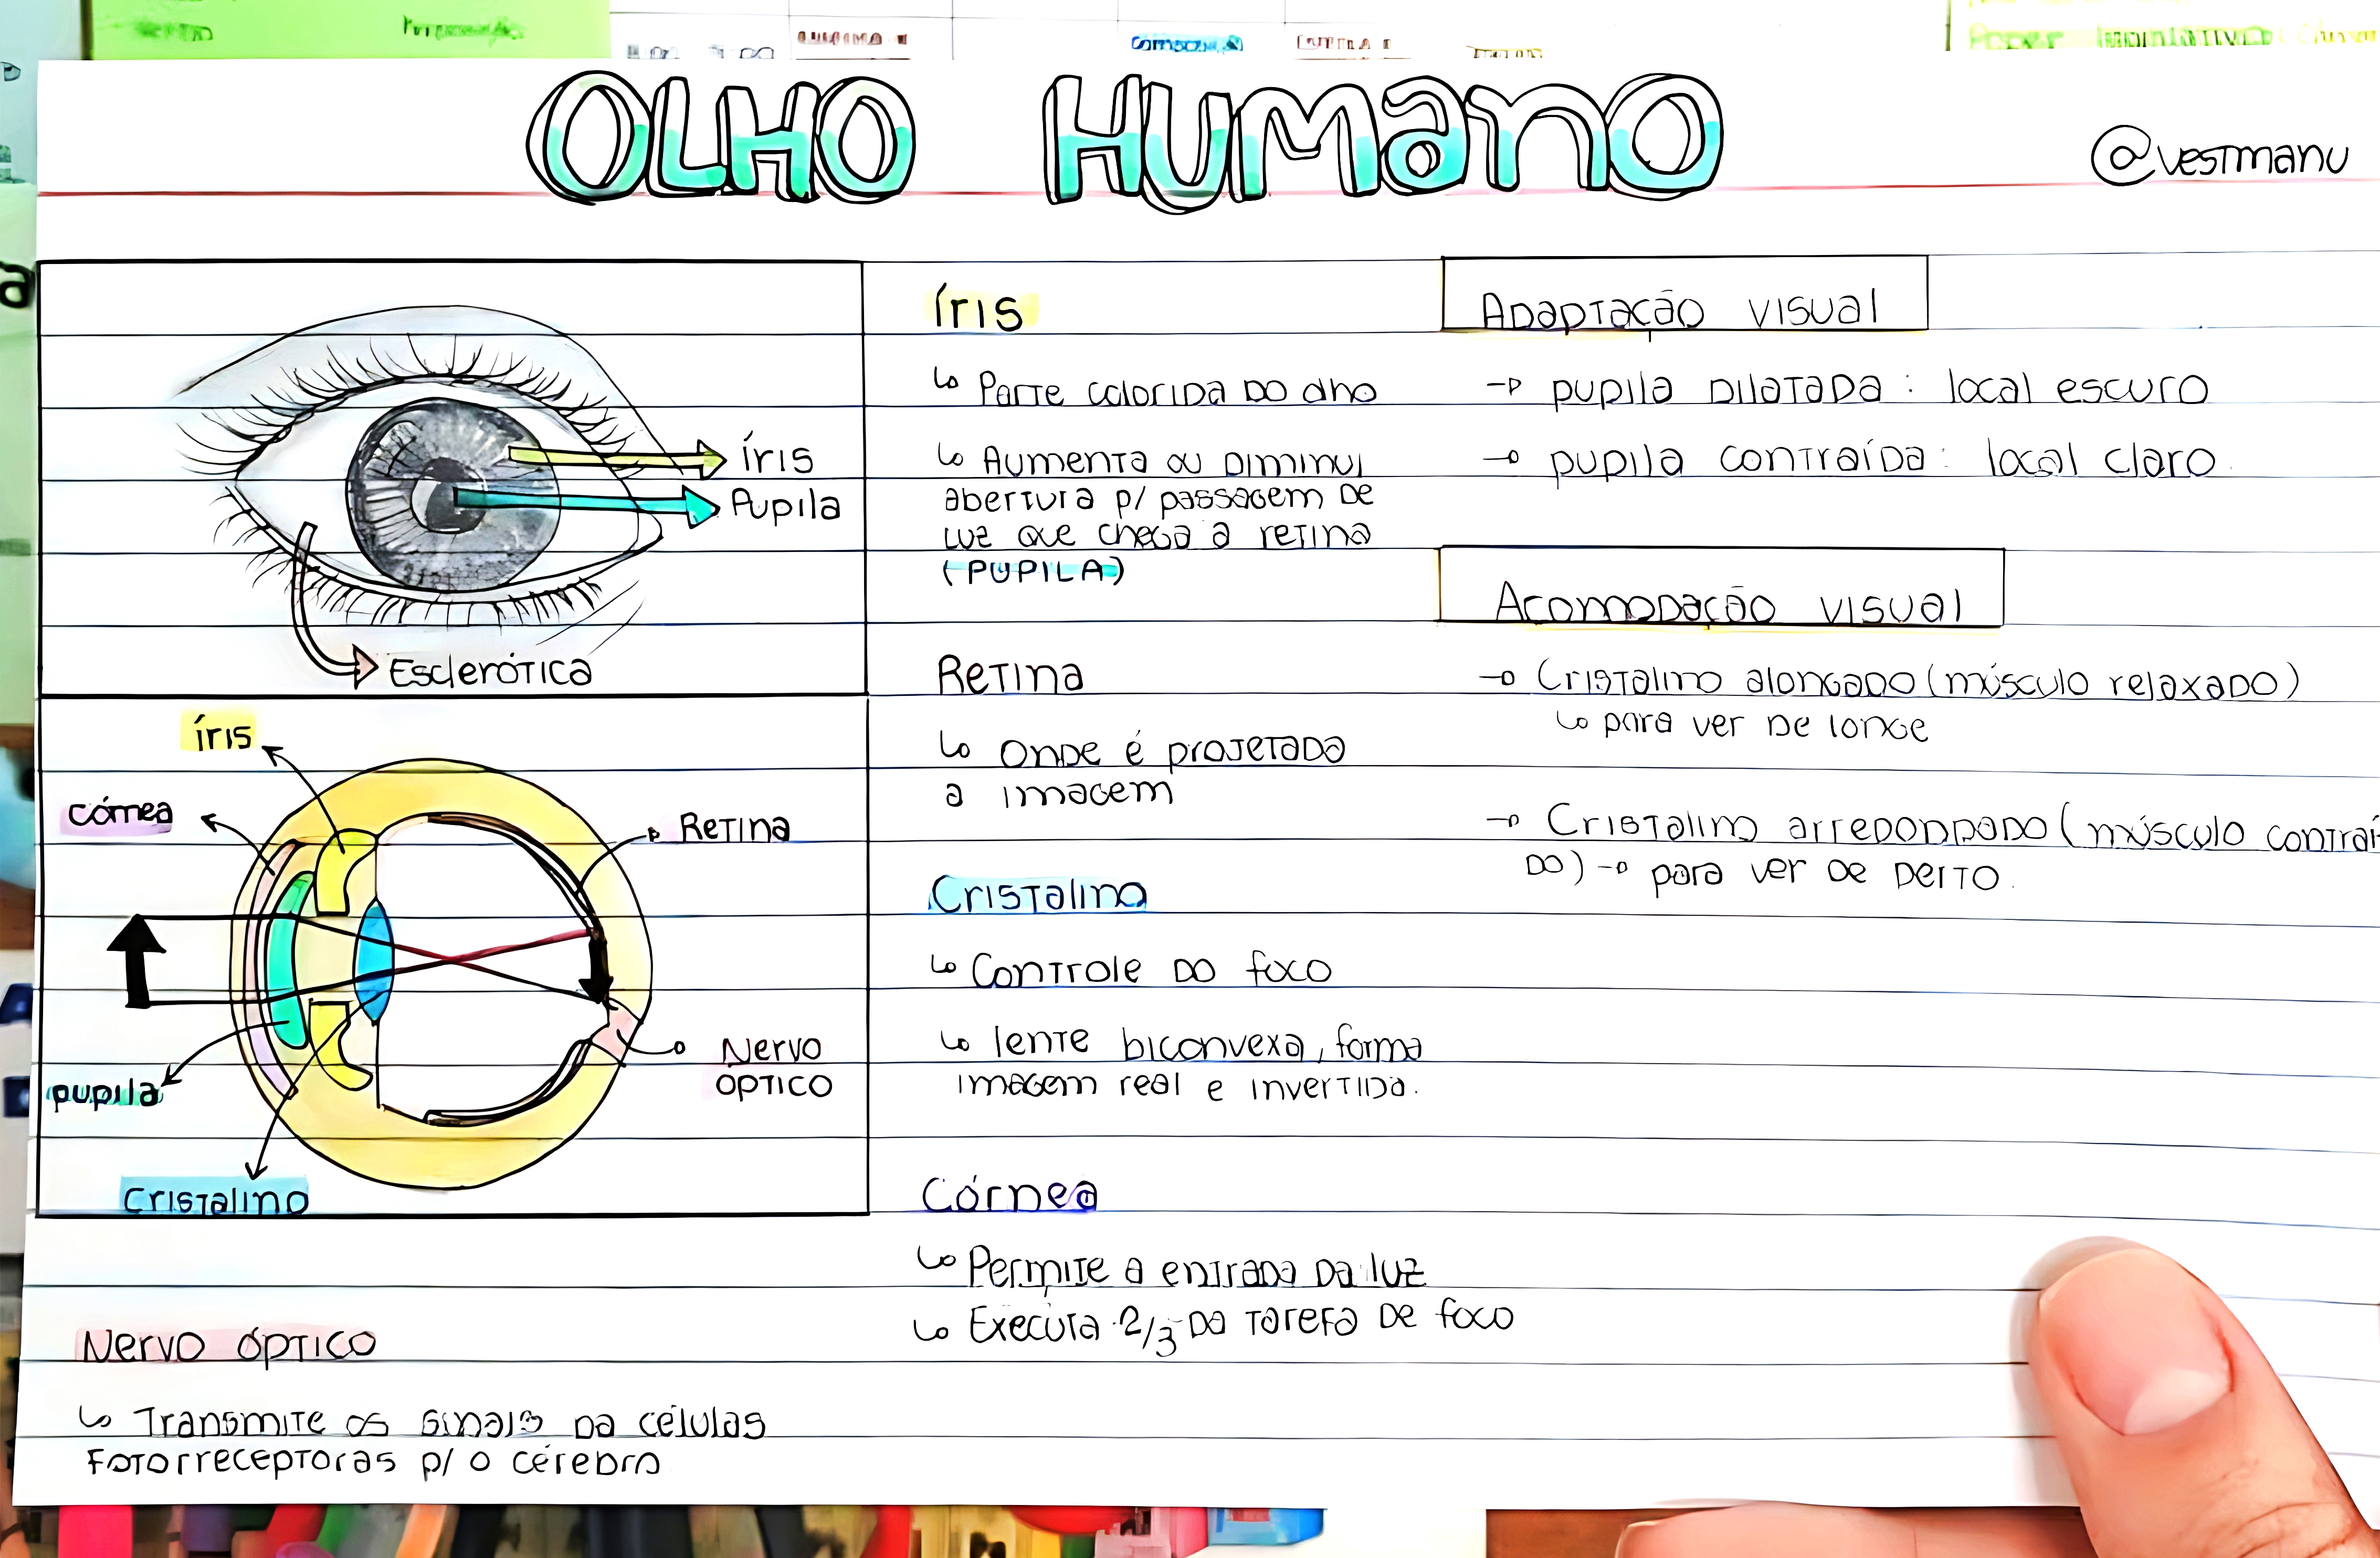 OLHO HUMANO
@vestmanu
íris
Pupila
Esclerótica
íris
córnea
Retina
Nervo
óptico
pupila
Cristalino
Nervo óptico
↳ Transmite os sinais da células
fotorreceptoras p/ o cérebro
Íris
↳ Parte colorida do olho
↳ Aumenta ou diminui
abertura p/ passagem de
luz que chega a retina
(PUPILA)
Retina
↳ Onde é projetada
a imagem
Cristalino
↳ Controle do foco
↳ lente biconvexa, forma
imagem real e invertida.
Córnea
↳ Permite a entrada da luz
↳ Executa 2/3 da tarefa de foco
Adaptação visual
→ pupila dilatada: local escuro
→ pupila contraída: local claro.
Acomodação visual
→ Cristalino alongado (músculo relaxado)
↳ para ver de longe
→ Cristalino arredondado (músculo contraí-
do) → para ver de perto.